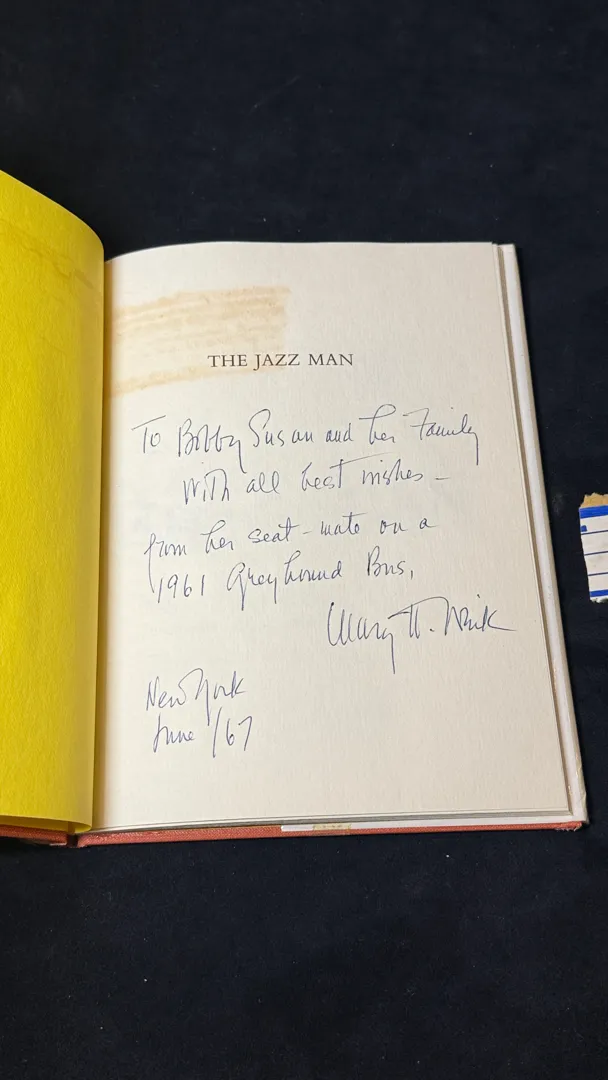 THE JAZZ MAN
To Bobby Susan and her Family
With all best wishes –
from her seat-mate on a
1961 Greyhound Bus,
Mary H. Weik
New York
June /67